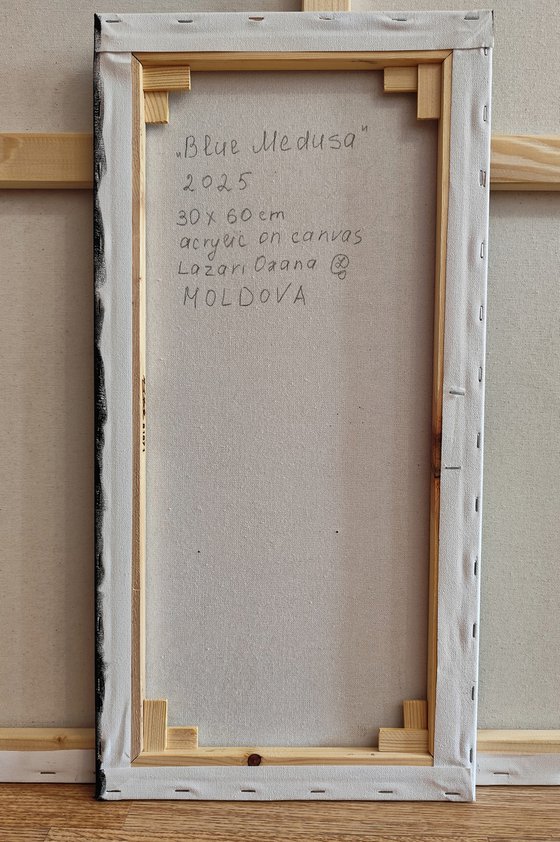 „Blue Medusa"
2025
30 x 60 cm
acrylic on canvas
Lazari Oxana
MOLDOVA